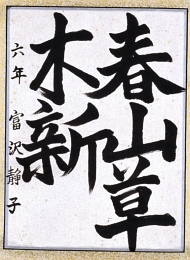 春山草
木新
六年 富沢静子